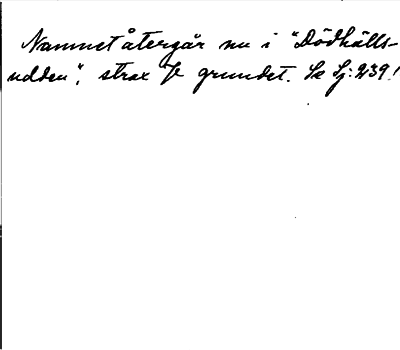 Namnet återgår nu i "Dödhälls-
udden", strax V grundet. Se Sj: 239!